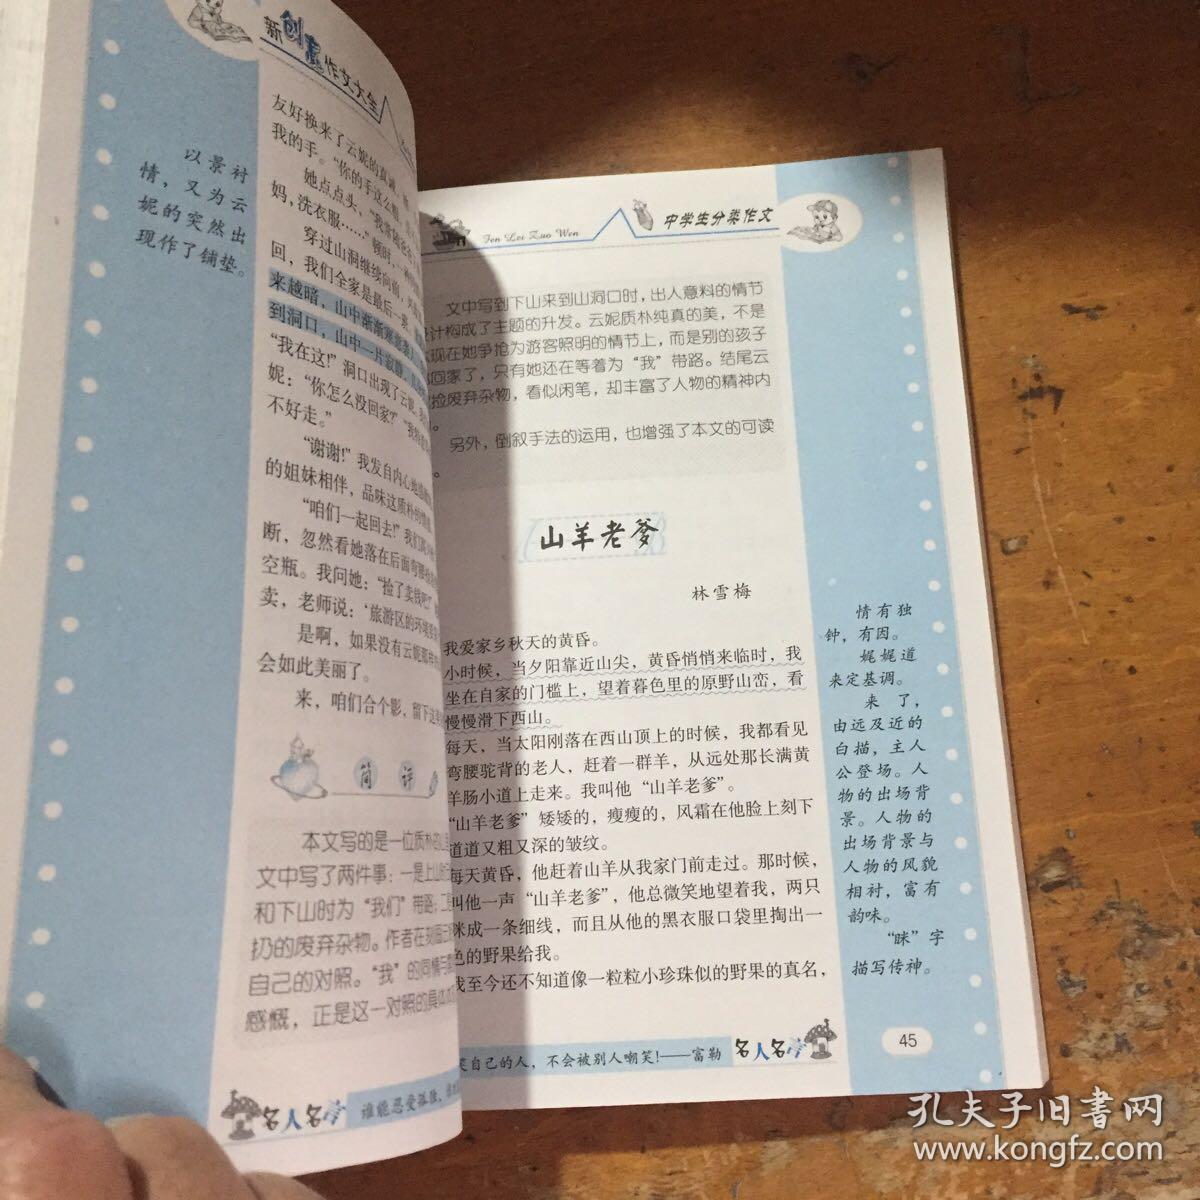 新创意作文大全
以景衬
情，又为云
妮的突然出
现作了铺垫。
友好换来了云妮的真诚
我的手。“你的手这么粗
她点点头，“我常随爸爸
妈，洗衣服……”顿时，一种
穿过山洞继续向前，
回，我们全家是最后一
来越暗，山中渐渐寒意袭人
到洞口，山中一片寂静，
“我在这!”洞口出现了云妮
妮：“你怎么没回家?”“我
不好走。”
“谢谢!”我发自内心地
的姐妹相伴，品味这质朴的情
“咱们一起回去!”我们
断，忽然看她落在后面弯腰
空瓶。我问她：“捡了卖钱吧?”
卖，老师说：‘旅游区的环境
是啊，如果没有云妮那样
会如此美丽了。
来，咱们合个影，留下这
简评
本文写的是一位质朴的
文中写了两件事：一是上山
和下山时为“我们”带路；二
扔的废弃杂物。作者在刻画
自己的对照。“我”的同情与
感慨，正是这一对照的具体
名人名言
谁能忍受孤独，
Fen Lei Zuo Wen
中学生分类作文
文中写到下山来到山洞口时，出人意料的情节
设计构成了主题的升发。云妮质朴纯真的美，不是
现在她争抢为游客照明的情节上，而是别的孩子
回家了，只有她还在等着为“我”带路。结尾云
捡废弃杂物，看似闲笔，却丰富了人物的精神内
。
另外，倒叙手法的运用，也增强了本文的可读
。
山羊老爹
林雪梅
我爱家乡秋天的黄昏。
小时候，当夕阳靠近山尖，黄昏悄悄来临时，我
坐在自家的门槛上，望着暮色里的原野山峦，看
慢慢滑下西山。
每天，当太阳刚落在西山顶上的时候，我都看见
弯腰驼背的老人，赶着一群羊，从远处那长满黄
羊肠小道上走来。我叫他“山羊老爹”。
“山羊老爹”矮矮的，瘦瘦的，风霜在他脸上刻下
道道又粗又深的皱纹。
每天黄昏，他赶着山羊从我家门前走过。那时候，
叫他一声“山羊老爹”，他总微笑地望着我，两只
眯成一条细线，而且从他的黑衣服口袋里掏出一
色的野果给我。
我至今还不知道像一粒粒小珍珠似的野果的真名，
情有独
钟，有因。
娓娓道
来定基调。
来了，
由远及近的
白描，主人
公登场。人
物的出场背
景。人物的
出场背景与
人物的风貌
相衬，富有
韵味。
“眯”字
描写传神。
笑自己的人，不会被别人嘲笑!——富勒
名人名言
45
孔夫子旧书网
www.kongfz.com